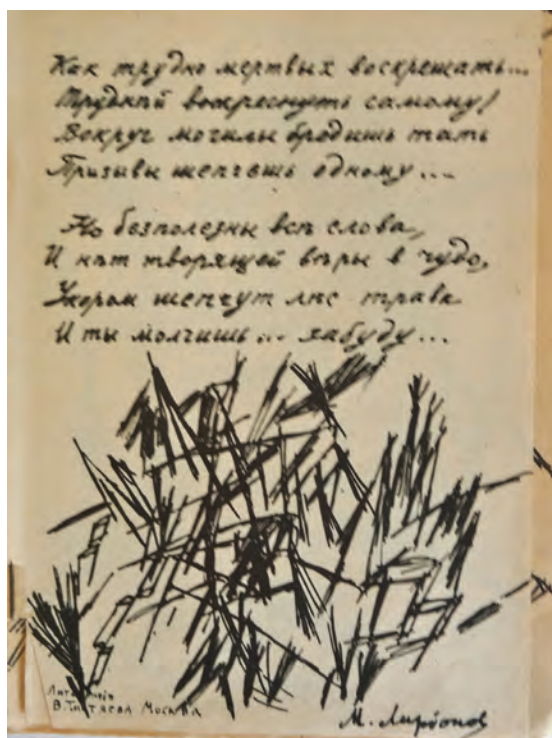 Как трудно мертвых воскрешать...
Труднѣй воскреснуть самому!
Вокруг могилы бродишь тать
Призывы шепчешь одному...
Но безполезны всѣ слова,
И нѣт творящей вѣры в чудо,
Укором шепчут лѣс трава
И ты молчишь... забуду...
В. Титяева Москва
М. Ларіонов